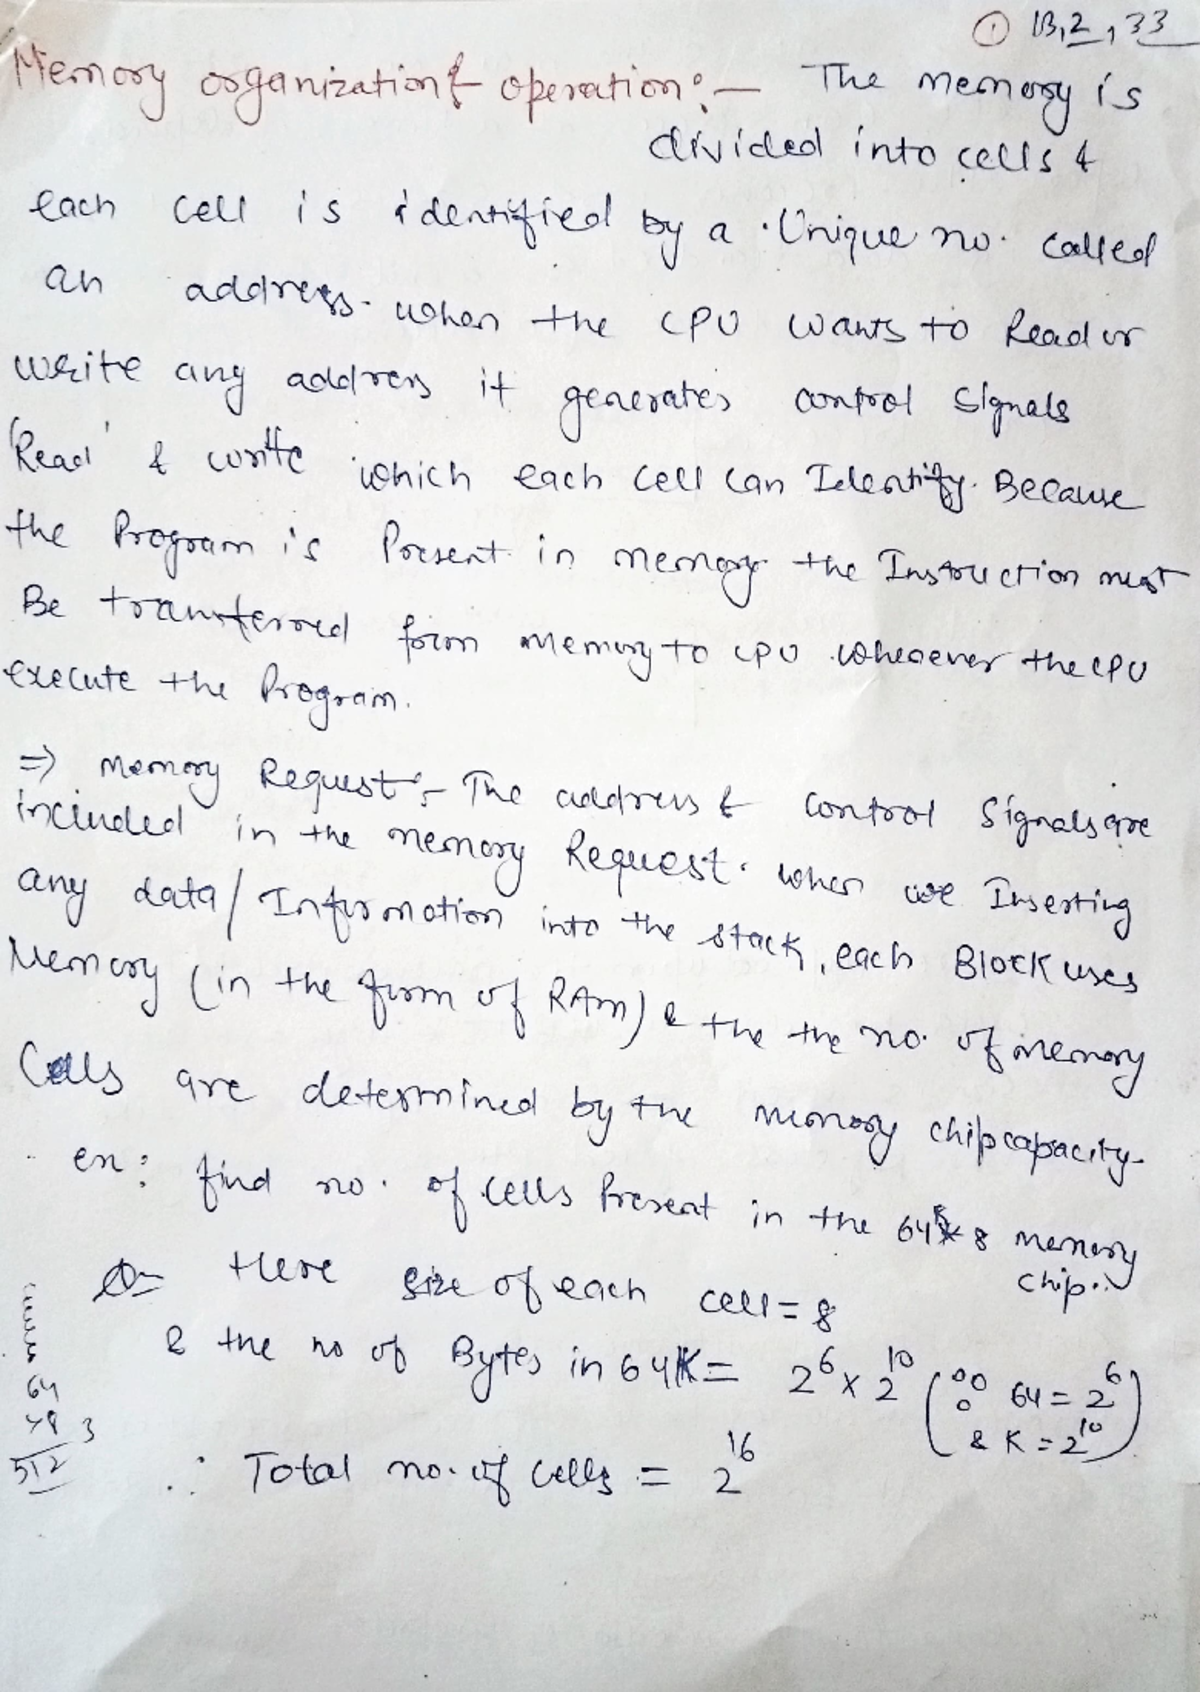 ① 13,2,33
Memory organization & operation:- The memory is
divided into cells &
each cell is identified by a Unique no. called
an address. when the CPU wants to Read or
write any address it generates control signals
'Read' & write which each cell can Identify. Because
the Program is Present in memory the Instruction must
Be transferred from memory to CPU whenever the CPU
execute the Program.
⇒ Memory Request:- The address & control signals are
included in the memory Request. when we Inserting
any data/Information into the stack, each Block uses
Memory (in the form of RAM) & the the no. of memory
Cells are determined by the memory chip capacity.
ex: find no. of cells Present in the 64K*8 memory
chip..
Here size of each cell = 8
& the no of Bytes in 64K = 2^6 x 2^10 (∵ 64 = 2^6
& K = 2^10)
∴ Total no. of cells = 2^16
64
x8 3
512